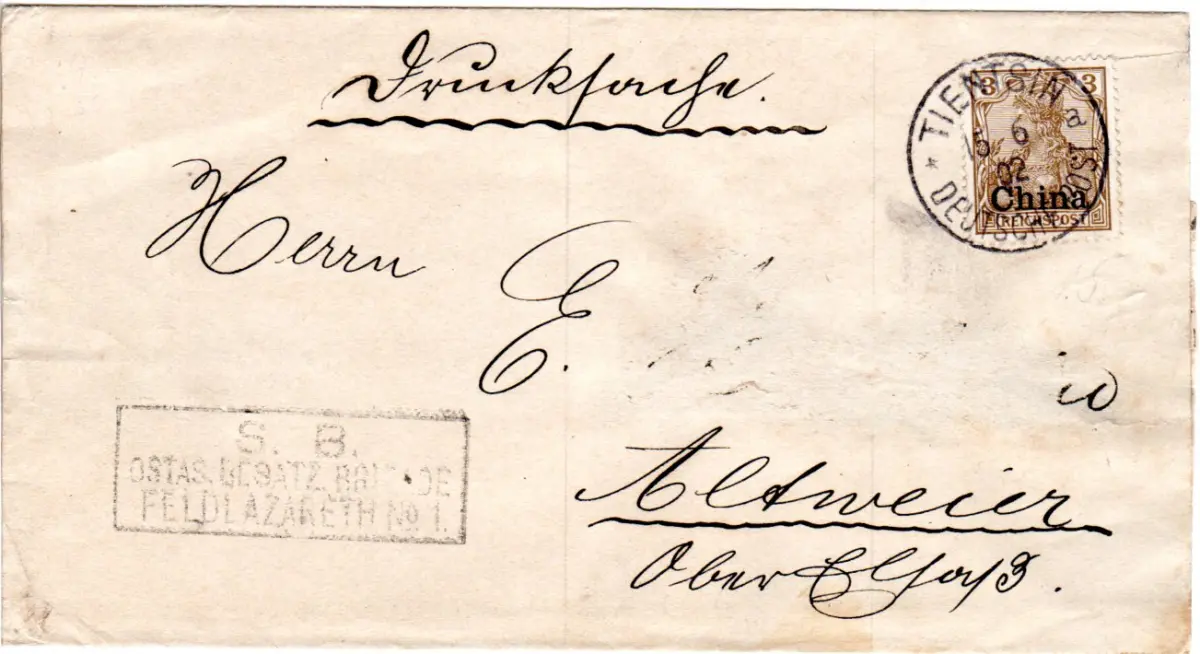 Drucksache.
3 3
TIENTSIN a
15 6
02
China
REICHSPOST
* DEUTSCHE POST
Herrn
E.
S. B.
OSTAS. BESATZ. BRIGADE
FELDLAZARETH No 1.
Altweier
Ober Elsaß.